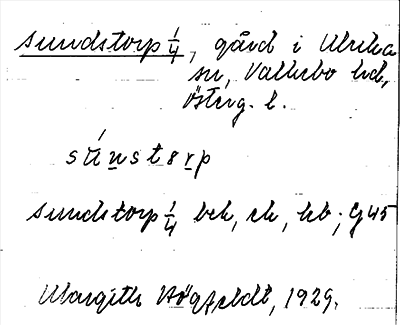 Sundstorp 1/4, gård i Ulrika
sn, Vallebo hd,
Österg. l.
súnstɜrp
Sundstorp 1/4 bek, ek, hb; G45
Margith Högfeldt, 1929.